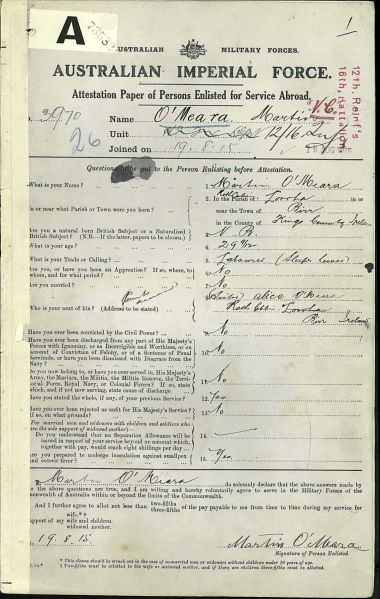 A
1
AUSTRALIAN MILITARY FORCES.
AUSTRALIAN IMPERIAL FORCE.
Attestation Paper of Persons Enlisted for Service Abroad.
12th. Reinf's
16th. Battalion
V.C.
No. 3970 Name O'Meara, Martin
26 Unit 12/16 Inf
Joined on 19.8.15
Questions to be put to the Person Enlisting before Attestation.
What is your Name? 1. Martin O'Meara
In or near what Parish or Town were you born? 2. In the Parish of Lorrha in or
near the Town of Birr
in the County of Kings County Ireland
Are you a natural born British Subject or a Naturalised
British Subject? (N.B.—If the latter, papers to be shown.) 3.
What is your age? 4. 29
What is your Trade or Calling? 5. Labourer (Sleeper Hewer)
Are you, or have you been an Apprentice? If so, where, to
whom, and for what period? 6. No
Are you married? 7. No
Who is your next of kin? (Address to be stated) 8. Alice O'Meara
Lorrha
Birr Ireland
Have you ever been convicted by the Civil Power? 9. No
Have you ever been discharged from any part of His Majesty's
Forces with Ignominy, or as Incorrigible and Worthless, or on
account of Conviction of Felony, or of a Sentence of Penal
Servitude, or have you been dismissed with Disgrace from the
Navy? 10. No
Do you now belong to, or have you ever served in, His Majesty's
Army, the Marines, the Militia, the Militia Reserve, the Territorial
Force, Royal Navy, or Colonial Forces? If so, state
which, and if not now serving, state cause of discharge 11. No
Have you stated the whole, if any, of your previous Service? 12. Yes
Have you ever been rejected as unfit for His Majesty's Service?
If so, on what grounds? 13. No
(For married men and widowers with children and soldiers who
are the sole support of widowed mother)—
Do you understand that no Separation Allowance will be
issued in respect of your service beyond an amount which,
together with pay, would reach eight shillings per day? 14. —
Are you prepared to undergo inoculation against smallpox
and enteric fever? 15. Yes
I, Martin O'Meara do solemnly declare that the above answers made by
me to the above questions are true, and I am willing and hereby voluntarily agree to serve in the Military Forces of the
Commonwealth of Australia within or beyond the limits of the Commonwealth.
And I further agree to allot not less than two-fifths
three-fifths of the pay payable to me from time to time during my service for
support of my wife.*†
wife and children.
widowed mother.
19.8.15 Martin O'Meara
Signature of Person Enlisted.
* This clause should be struck out in the case of unmarried men or widowers without children under 18 years of age.
† Two-fifths must be allotted to the wife or widowed mother, and if there are children three-fifths must be allotted.